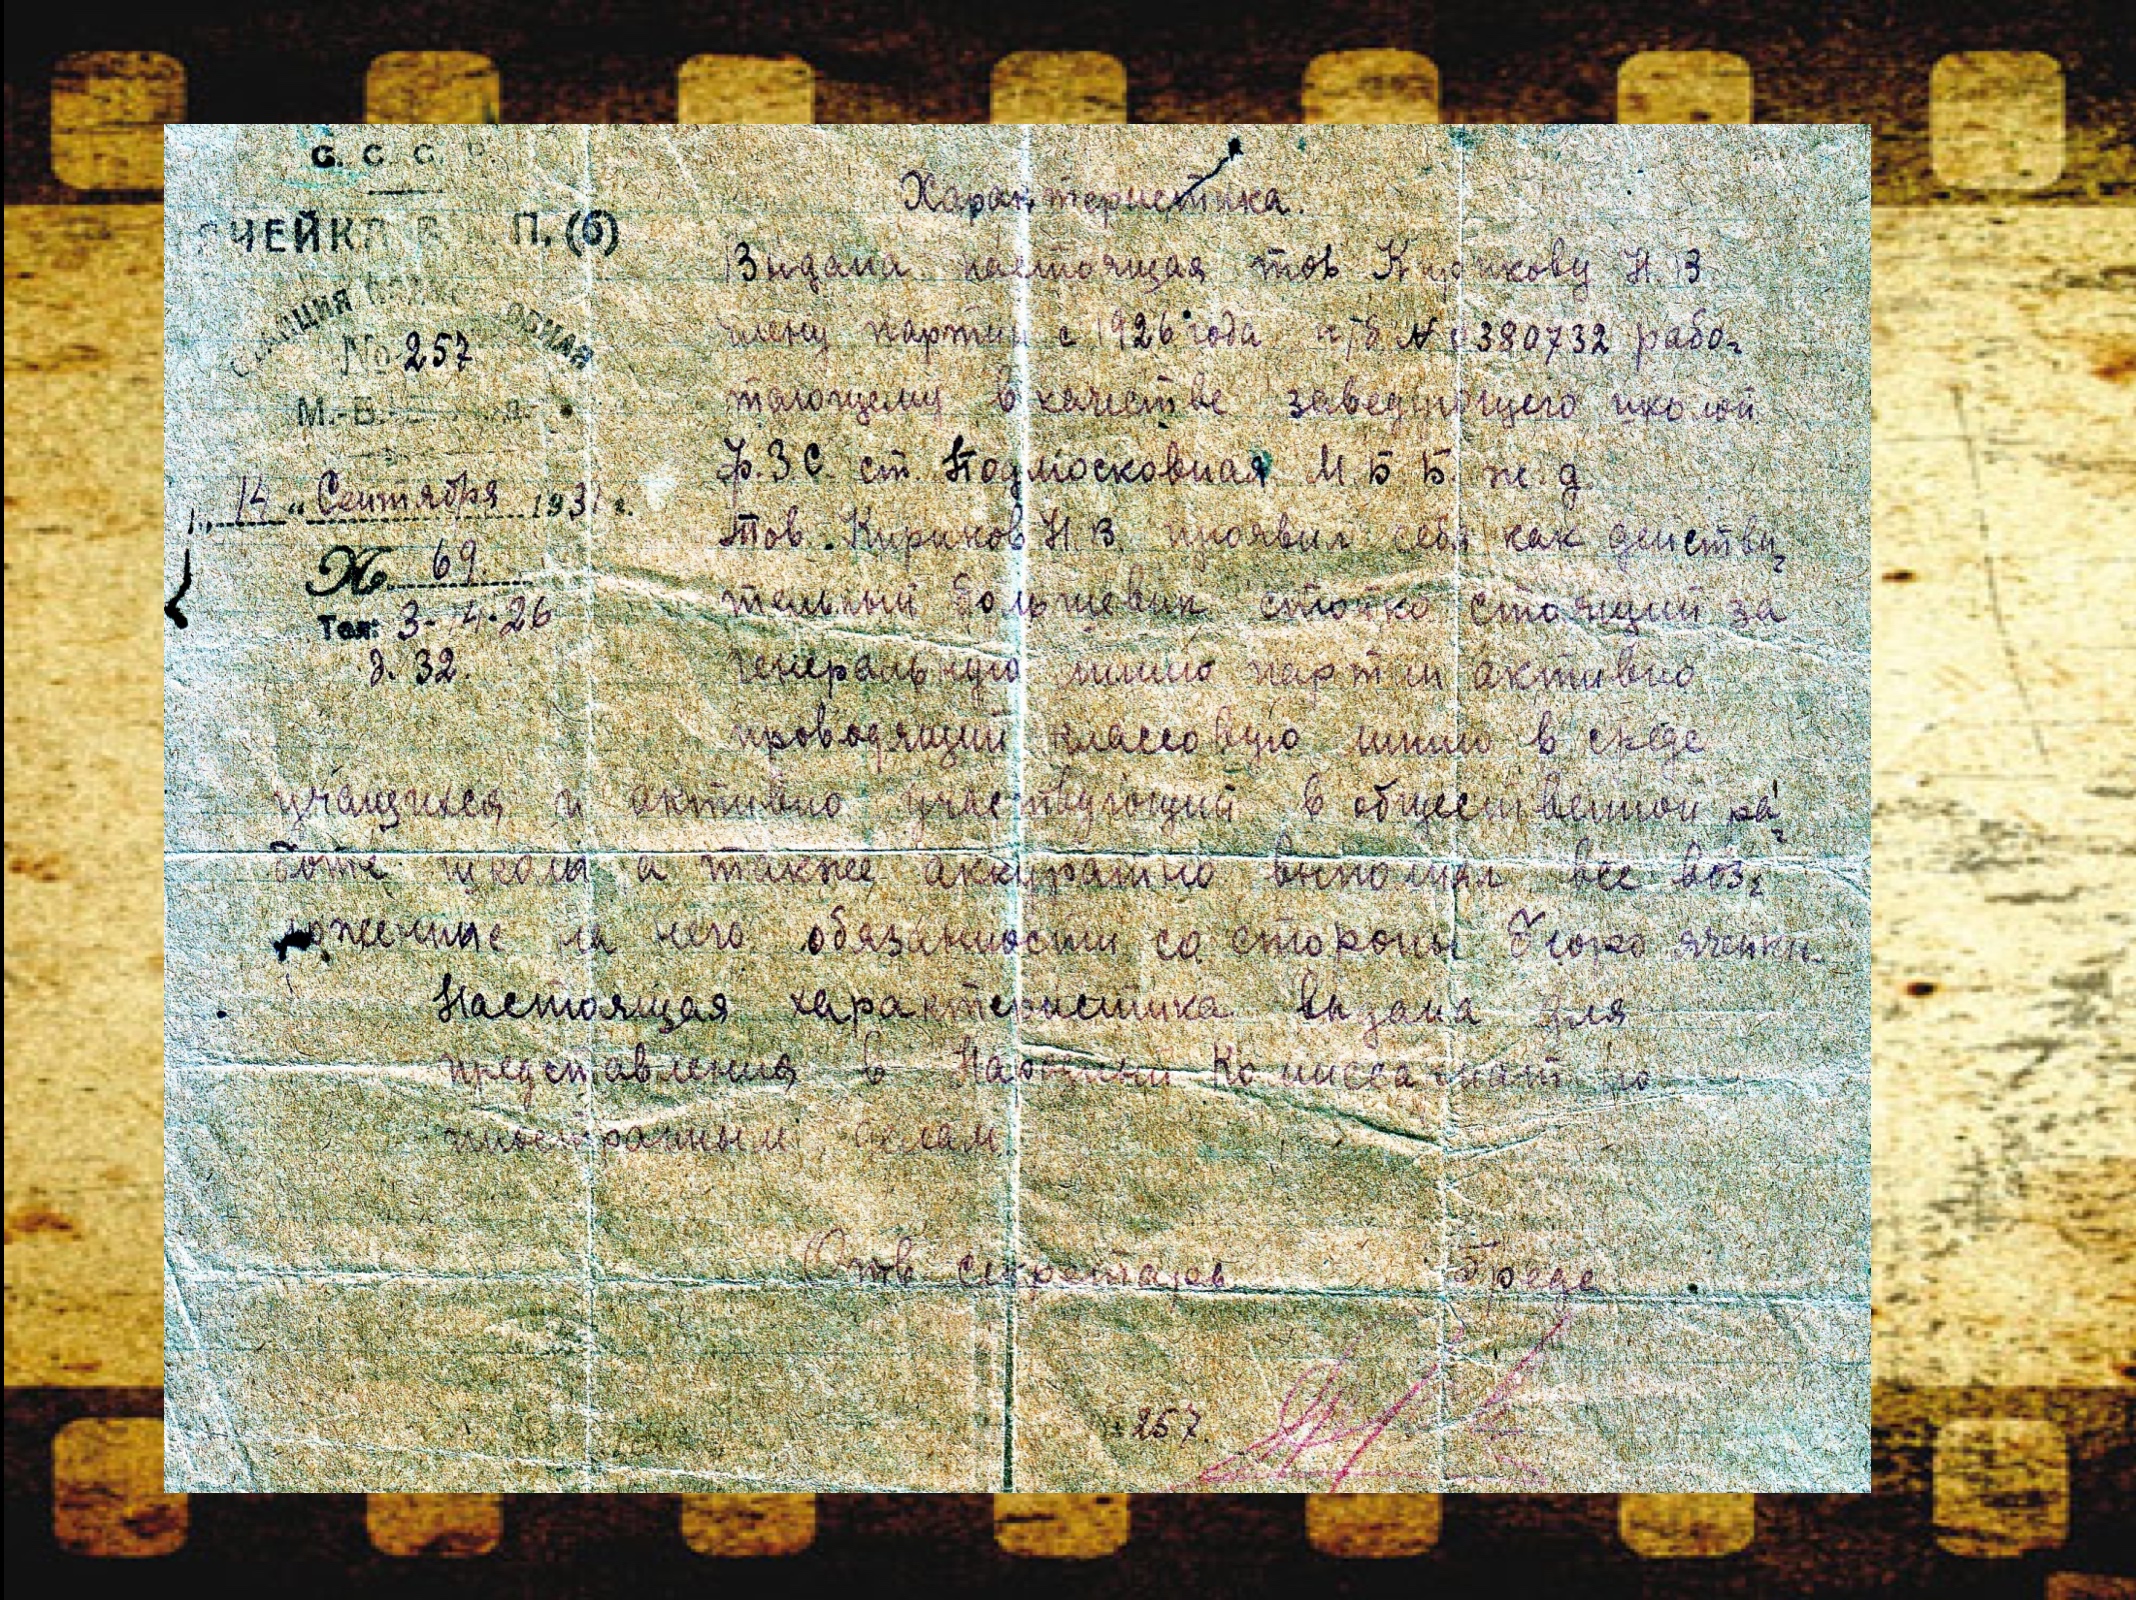 С. С. С. Р.
ЯЧЕЙКА В П. (б)
СТАНЦИЯ ПОДМОСКОВНАЯ
№ 257
М.-Б. д.
"14" Сентября 1931 г.
№ 69.
Тел: 3-14-26
д. 32.
Характеристика.
Выдана настоящая тов Кирикову Н. В
члену партии с 1926 года п/б № 0380732 рабо-
тающему в качестве заведующего школой
Ф.З.С. ст. Подмосковная М Б Б. ж. д
Тов. Кириков Н. В. проявил себя как действи-
тельный большевик стойко стоящий за
генеральную линию партии активно
проводящий классовую линию в среде
учащихся и активно участвующий в общественной ра-
боте школы а также аккуратно выполнял все воз-
ложенные на него обязанности со стороны бюро ячейки.
Настоящая характеристика выдана для
представления в Народный Комиссариат по
иностранным делам.
Отв секретарь
257.